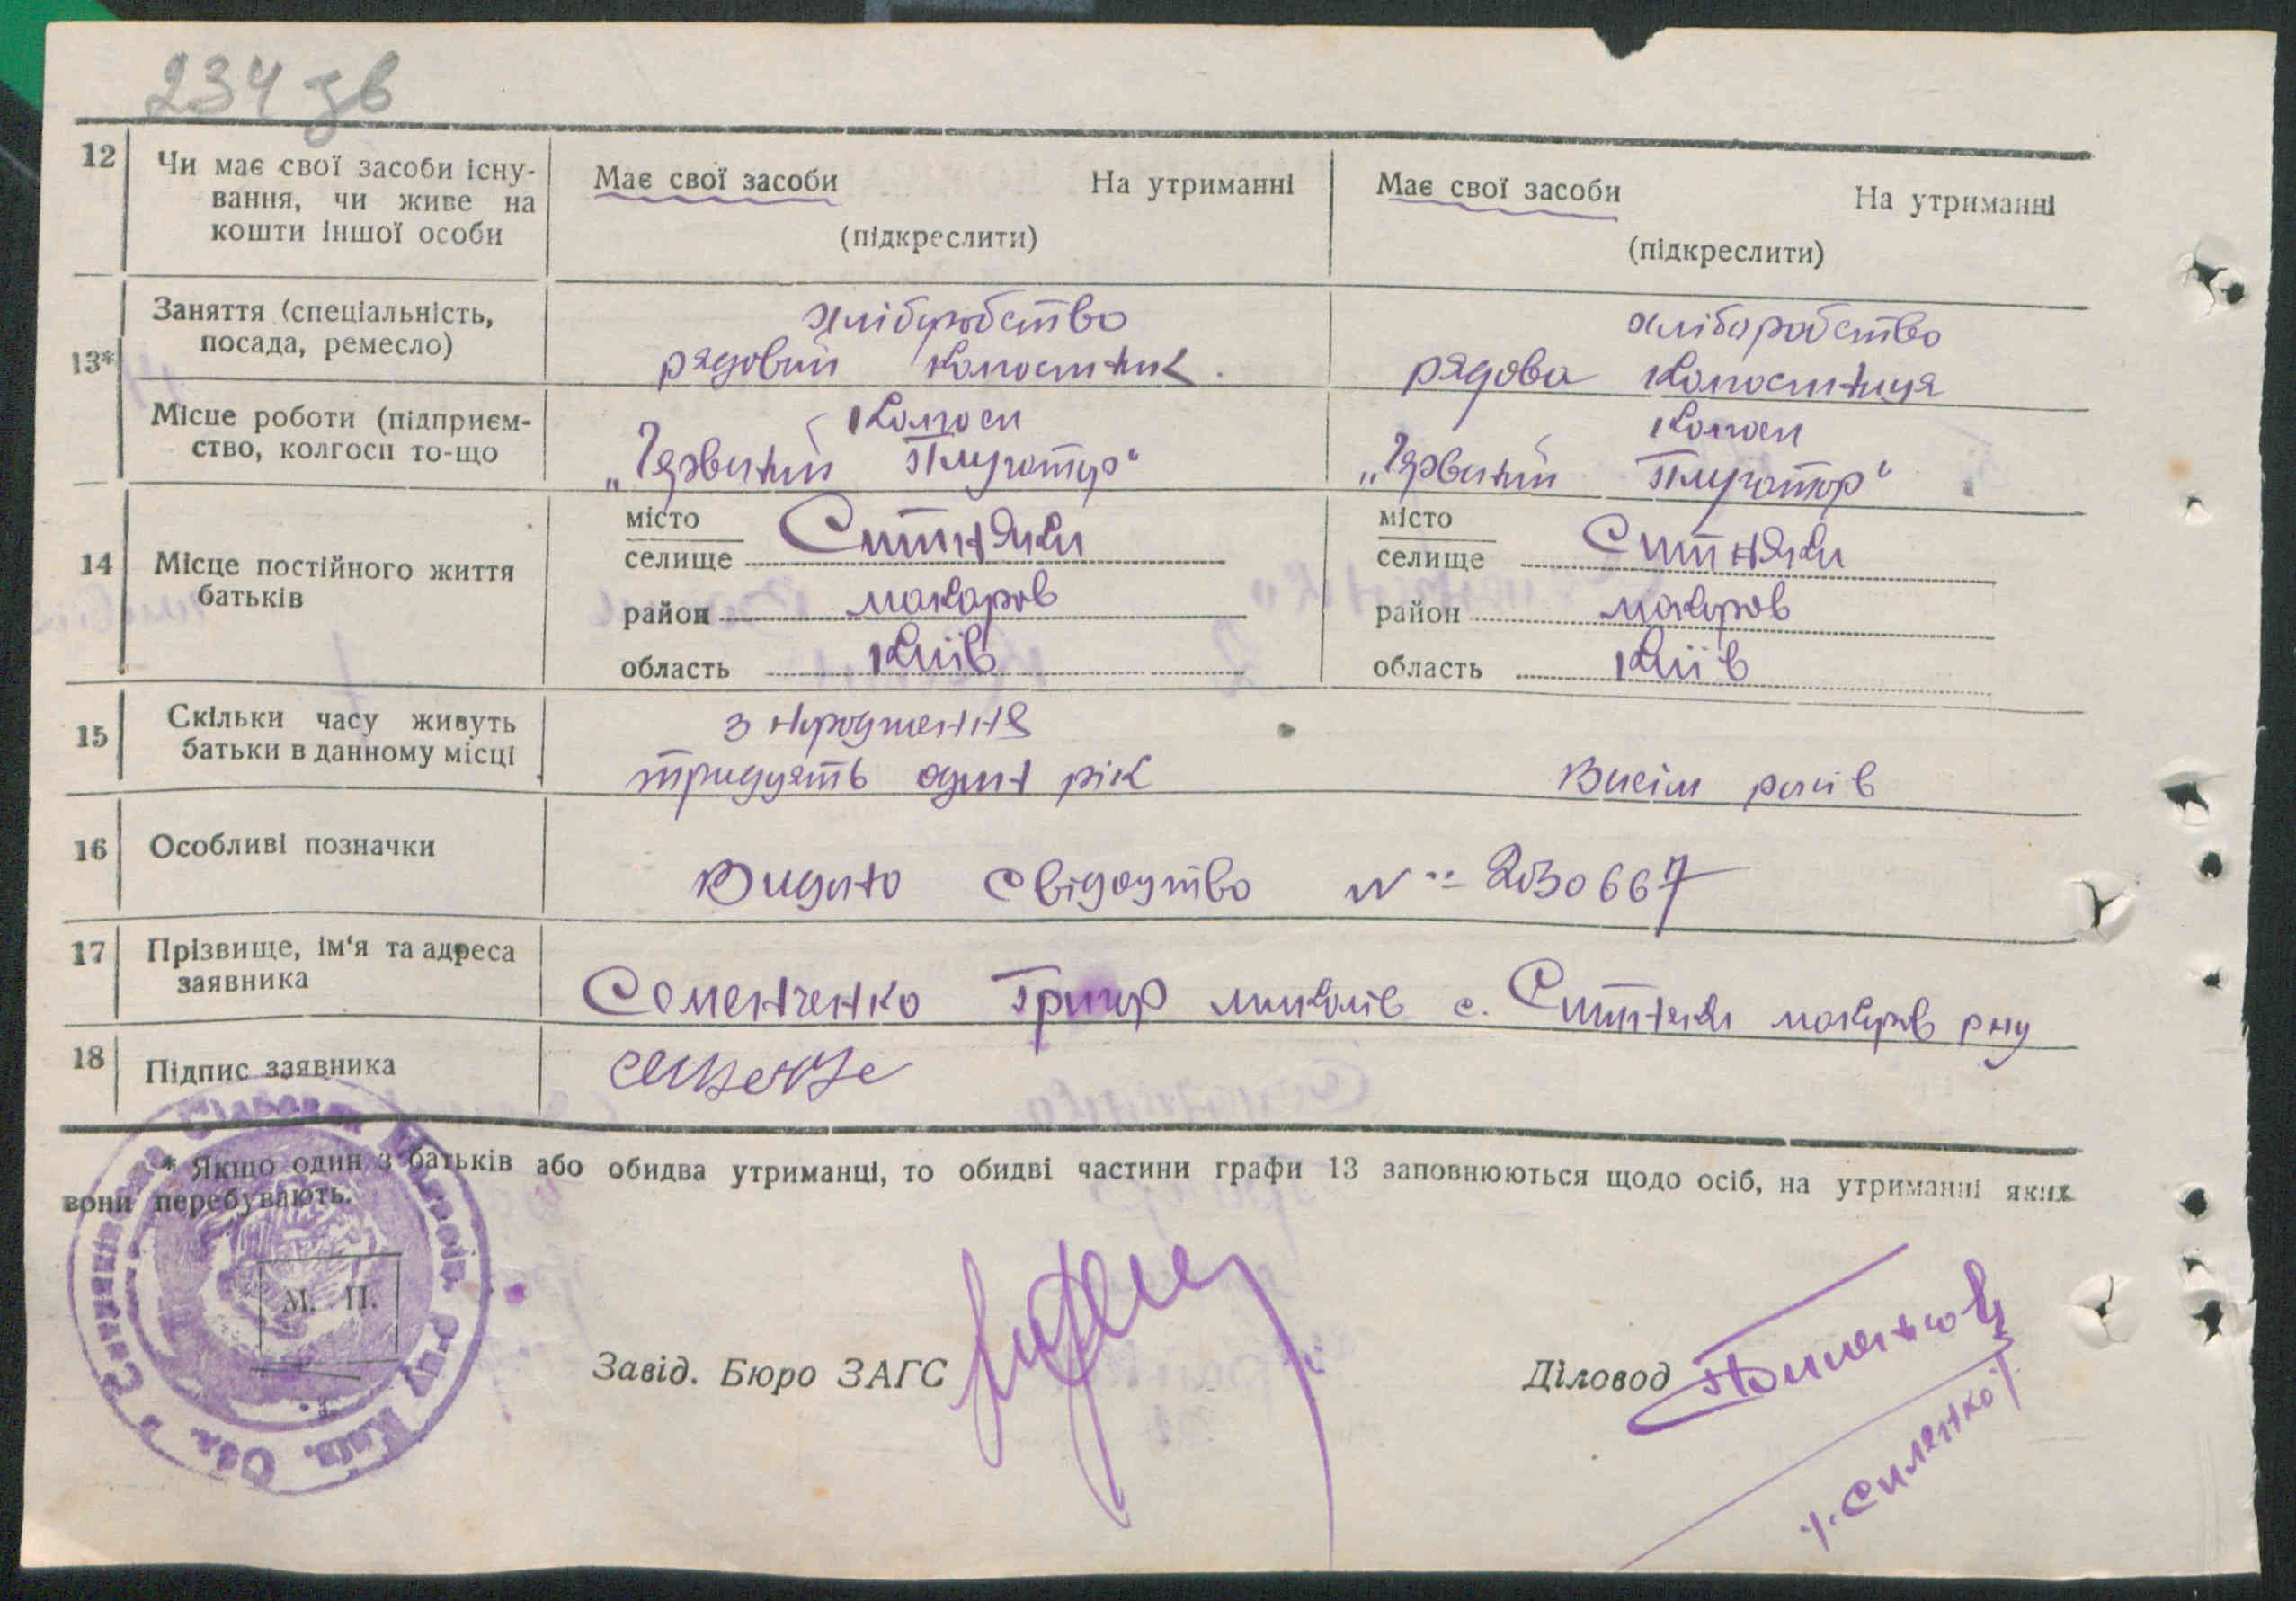 234 зв
12 Чи має свої засоби існу- Має свої засоби На утриманні Має свої засоби На утриманні
вання, чи живе на
кошти іншої особи (підкреслити) (підкреслити)
13* Заняття (спеціальність, хліборобство хліборобство
посада, ремесло) рядовий колгоспник. рядова колгоспниця
Місце роботи (підприєм- Колгосп Колгосп
ство, колгосп то-що „Червоний Плугатар“ „Червоний Плугатар“
14 Місце постійного життя батьків
місто селище Ситняки місто селище Ситняки
район макаров район макаров
область Київ область Київ
15 Скільки часу живуть з народження
батьки в данному місці тридцять один рік Вісім років
16 Особливі позначки Видано свідоцтво № 230667
17 Прізвище, ім'я та адреса
заявника Семенченко Григор миколів с. Ситняки макаров рну
18 Підпис заявника
* Якщо один з батьків або обидва утриманці, то обидві частини графи 13 заповнюються щодо осіб, на утриманні яких
вони перебувають.
М. П.
Завід. Бюро ЗАГС Діловод